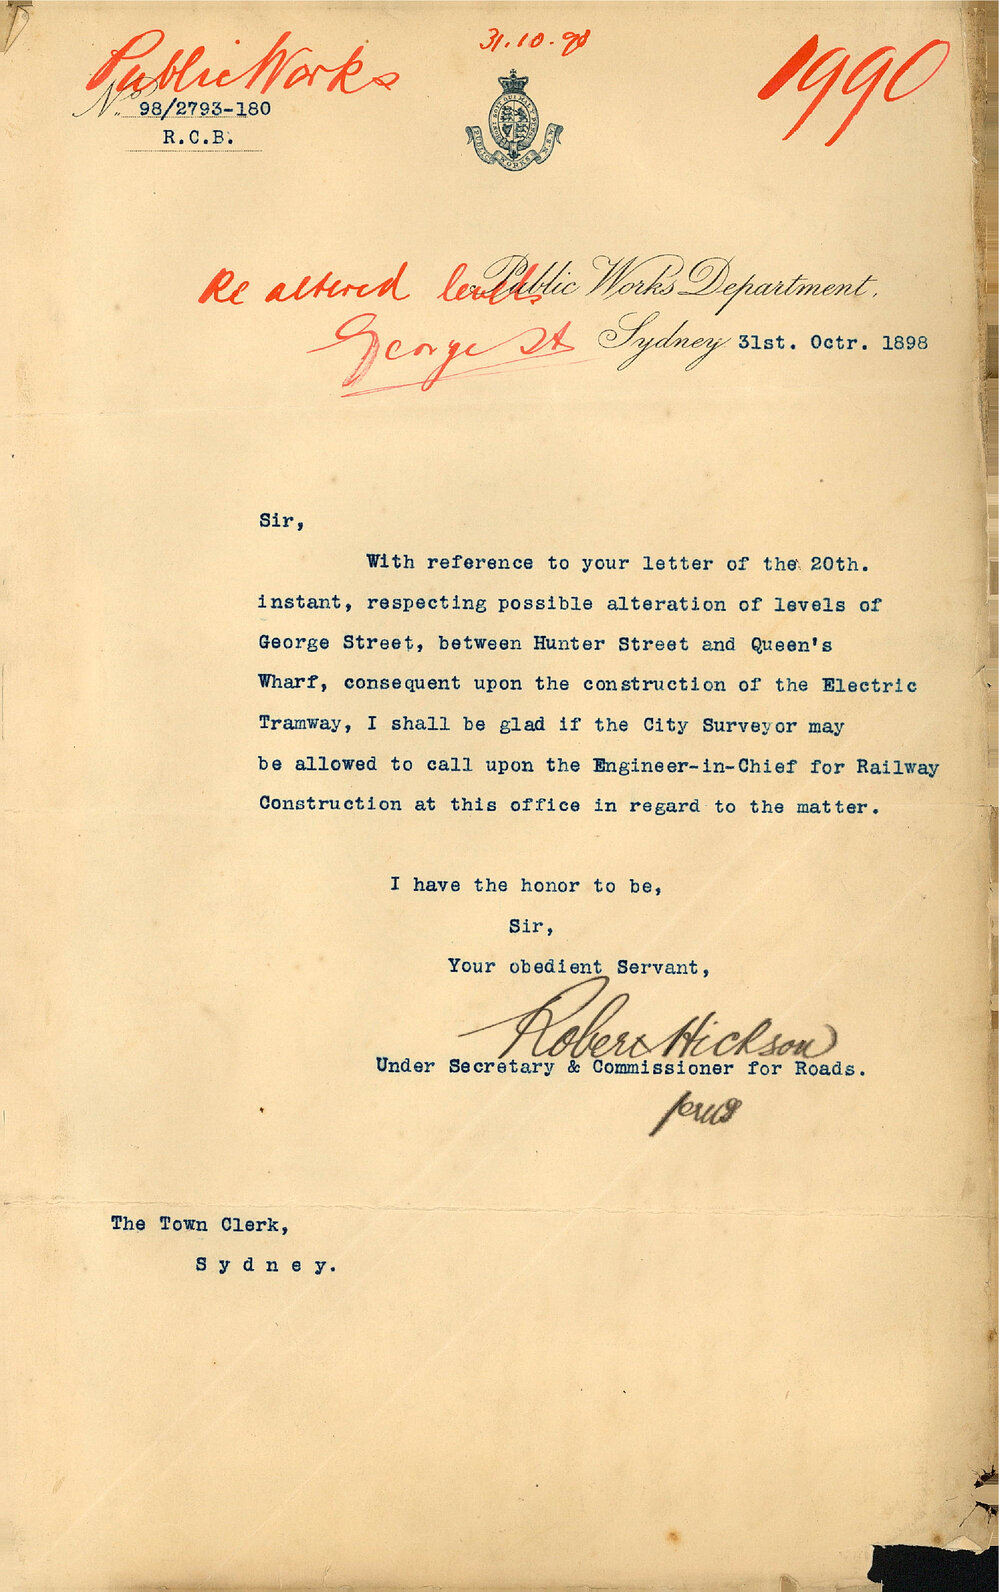 Public Works
31.10.98
1990
No. 98/2793-180
R.C.B.
PUBLIC WORKS N.S.W.
Re altered levels
Public Works Department,
George St
Sydney 31st. Octr. 1898
Sir,
With reference to your letter of the 20th.
instant, respecting possible alteration of levels of
George Street, between Hunter Street and Queen's
Wharf, consequent upon the construction of the Electric
Tramway, I shall be glad if the City Surveyor may
be allowed to call upon the Engineer-in-Chief for Railway
Construction at this office in regard to the matter.
I have the honor to be,
Sir,
Your obedient Servant,
Robert Hickson
Under Secretary & Commissioner for Roads.
The Town Clerk,
Sydney.